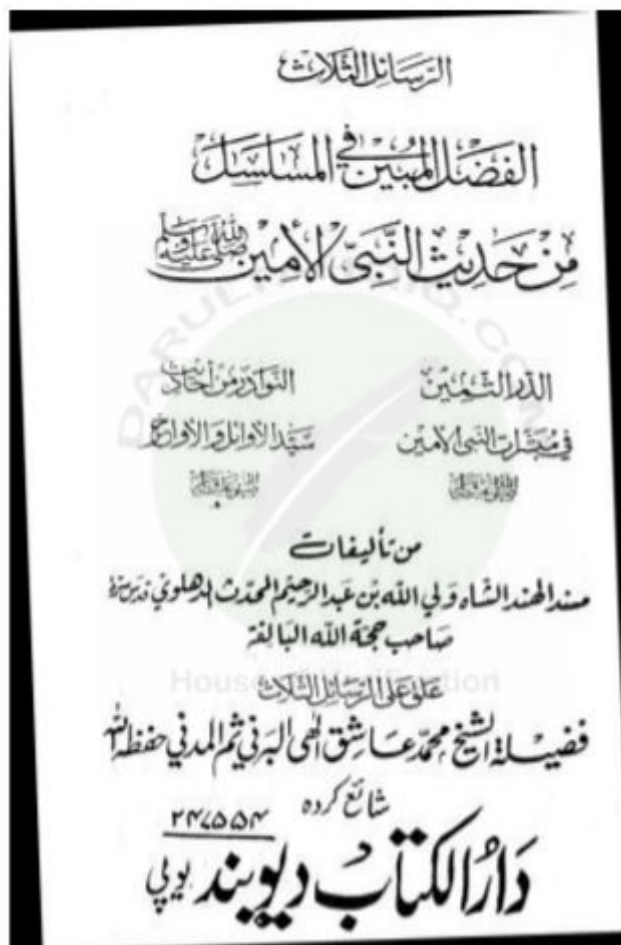 الرسائل الثلاث
الفضل المبين في المسلسل
من حديث النبي الأمين صلى الله عليه وسلم
الدر الثمين
في مبشرات النبي الأمين
النوادر من أحاديث
سيد الأوائل والأواخر
من تأليفات
مسند الهند الشاه ولي الله بن عبد الرحيم المحدث الدهلوي قدس سره
صاحب حجة الله البالغة
علق على الرسائل الثلاث
فضيلة الشيخ محمد عاشق الهى البرني ثم المدني حفظه الله
شائع كرده
۲۴۷۵۵۴
دار الكتاب ديوبند يوپي